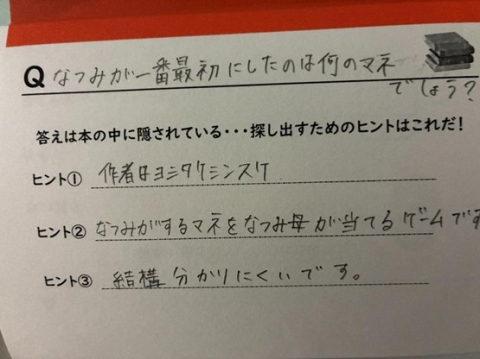 Q なつみが一番最初にしたのは何のマネ
でしょう?
答えは本の中に隠されている・・・探し出すためのヒントはこれだ!
ヒント① 作者はヨシタケシンスケ
ヒント② なつみがするマネをなつみ母が当てるゲームです
ヒント③ 結構分かりにくいです。